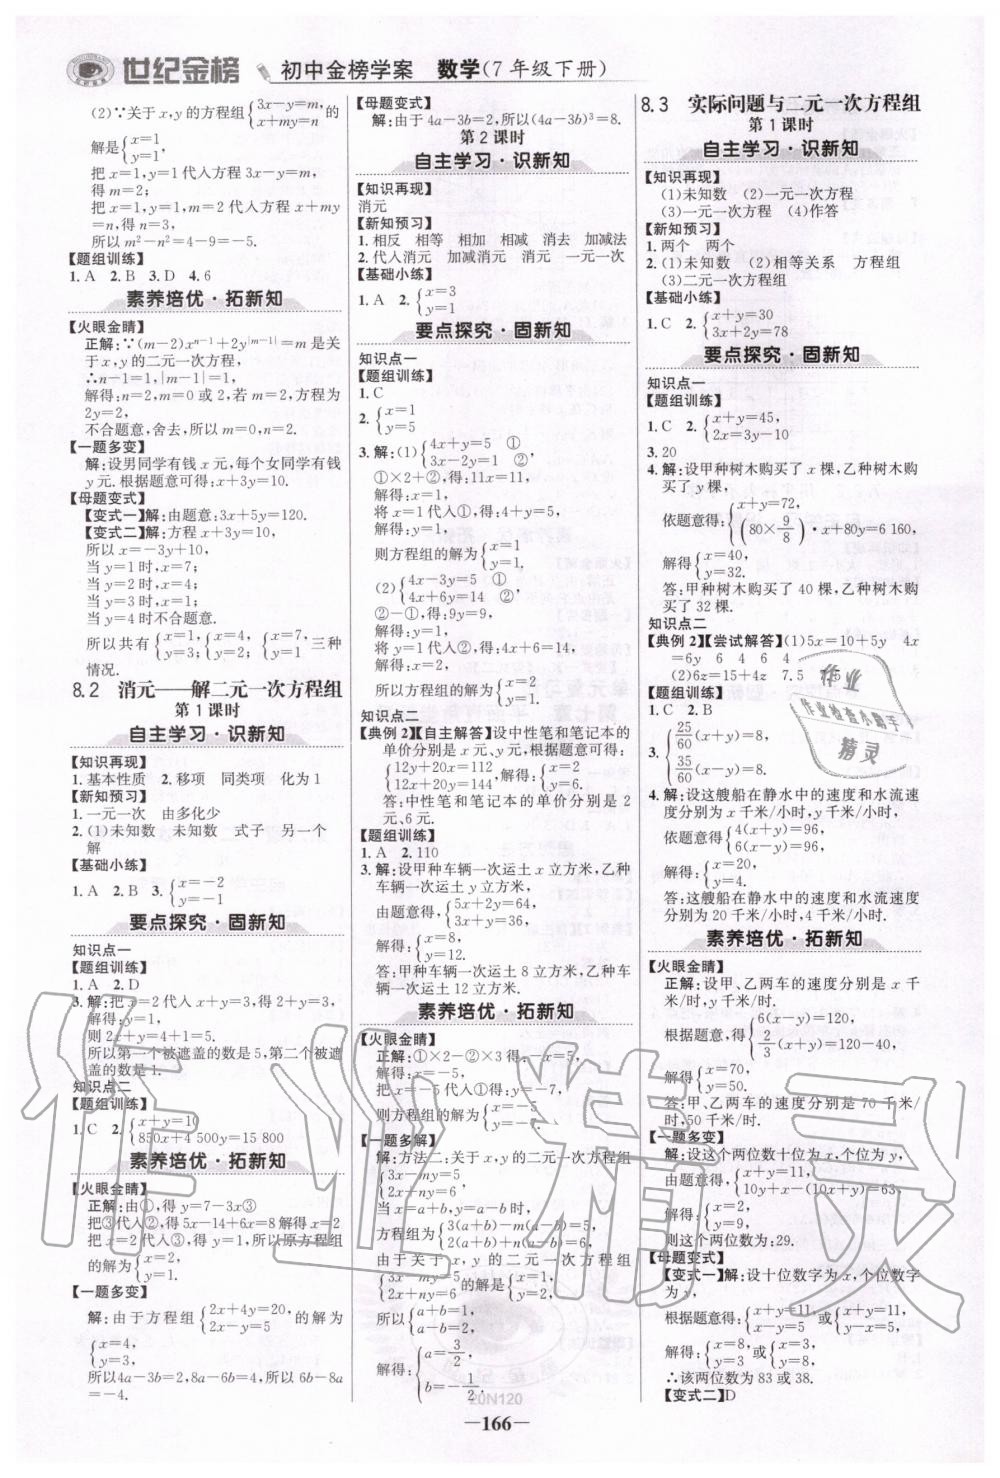 世纪金榜 初中金榜学案 数学(7年级下册)
(2)∵关于x,y的方程组{3x-y=m, x+my=n的
解是{x=1, y=1,
把x=1,y=1代入方程3x-y=m,
得m=2;
把x=1,y=1,m=2代入方程x+my
=n,得n=3,
所以m²-n²=4-9=-5.
【题组训练】
1.A 2.B 3.D 4.6
素养培优·拓新知
【火眼金睛】
正解:∵(m-2)xⁿ⁻¹+2y^|m-1|=m是关
于x,y的二元一次方程,
∴n-1=1,|m-1|=1,
解得:n=2,m=0或2,若m=2,方程为
2y=2,
不合题意,舍去,所以m=0,n=2.
【一题多变】
解:设男同学有钱x元,每个女同学有钱
y元.根据题意可得:x+3y=10.
【母题变式】
【变式一】解:由题意:3x+5y=120.
【变式二】解:方程x+3y=10,
所以x=10-3y,
当y=1时,x=7;
当y=2时,x=4;
当y=3时,x=1;
当y=4时不合题意.
所以共有{x=1, y=3;{x=4, y=2;{x=7, y=1三种
情况.
8.2 消元——解二元一次方程组
第1课时
自主学习·识新知
【知识再现】
1.基本性质 2.移项 同类项 化为1
【新知预习】
1.一元一次 由多化少
2.(1)未知数 未知数 式子 另一个
解
【基础小练】
1.A 2.B 3.{x=-2 y=-1
要点探究·固新知
知识点一
【题组训练】
1.A 2.D
3.解:把x=2代入x+y=3,得2+y=3,
解得:y=1,
则2x+y=4+1=5.
所以第一个被遮盖的数是5,第二个被遮
盖的数是1.
知识点二
【题组训练】
1.C 2.{x+y=10 850x+4 500y=15 800
素养培优·拓新知
【火眼金睛】
正解:由①,得y=7-3x③
把③代入②,得5x-14+6x=8解得x=2
把x=2代入③,得y=1,所以原方程组
的解为{x=2, y=1.
【一题多变】
解:由于方程组{2x+4y=20, 2x-y=5的解为
{x=4, y=3,
所以4a-3b=2,8a-6b=4,所以6b-8a
=-4.
【母题变式】
解:由于4a-3b=2,所以(4a-3b)³=8.
第2课时
自主学习·识新知
【知识再现】
消元
【新知预习】
1.相反 相等 相加 相减 消去 加减法
2.代入消元 加减消元 消元 一元一次
【基础小练】
1.A 2.{x=3 y=1
要点探究·固新知
知识点一
【题组训练】
1.C
2.{x=1 y=5
3.解:(1){4x+y=5 ① 3x-2y=1 ②,
①×2+②,得:11x=11,
解得:x=1,
将x=1代入①,得:4+y=5,
解得:y=1,
则方程组的解为{x=1 y=1.
(2){4x-3y=5 ① 4x+6y=14 ②,
②-①,得:9y=9,
解得:y=1,
将y=1代入②,得:4x+6=14,
解得:x=2,
所以方程组的解为{x=2 y=1.
知识点二
【典例2】【自主解答】设中性笔和笔记本的
单价分别是x元、y元,根据题意可得:
{12y+20x=112 12x+20y=144,解得:{x=2 y=6.
答:中性笔和笔记本的单价分别是2
元、6元.
【题组训练】
1.A 2.110
3.解:设甲种车辆一次运土x立方米,乙种
车辆一次运土y立方米,
由题意得,{5x+2y=64, 3x+y=36,
解得:{x=8, y=12.
答:甲种车辆一次运土8立方米,乙种车
辆一次运土12立方米.
素养培优·拓新知
【火眼金睛】
正解:①×2-②×3得:-x=5,
解得:x=-5,
把x=-5代入①得:y=-7,
则方程组的解为{x=-5 y=-7.
【一题多解】
解:方法二:关于x,y的二元一次方程组
{3x-my=5 2x+ny=6,
当x=a+b,y=a-b时,
方程组为{3(a+b)-m(a-b)=5, 2(a+b)+n(a-b)=6,
由于关于x,y的二元一次方程组
{3x-my=5 2x+ny=6的解是{x=1, y=2,
所以{a+b=1, a-b=2,
解得:{a=3/2, b=-1/2.
8.3 实际问题与二元一次方程组
第1课时
自主学习·识新知
【知识再现】
(1)未知数 (2)一元一次方程
(3)一元一次方程 (4)作答
【新知预习】
1.两个 两个
2.(1)未知数 (2)相等关系 方程组
(3)二元一次方程组
【基础小练】
1.C 2.{x+y=30 3x+2y=78
要点探究·固新知
知识点一
【题组训练】
1.C 2.{x+y=45, 2x=3y-10
3.20
4.解:设甲种树木购买了x棵,乙种树木购
买了y棵,
依题意得:{x+y=72, (80×9/8)·x+80y=6 160,
解得{x=40, y=32.
答:甲种树木购买了40棵,乙种树木购
买了32棵.
知识点二
【典例2】【尝试解答】(1)5x=10+5y 4x
=6y 6 4 6 4
(2)6z=15+4z 7.5 7.5
【题组训练】
1.C 2.B
3.{25/60(x+y)=8, 35/60(x-y)=8.
4.解:设这艘船在静水中的速度和水流速
度分别为x千米/小时,y千米/小时,
依题意得{4(x+y)=96, 6(x-y)=96,
解得:{x=20, y=4.
答:这艘船在静水中的速度和水流速度
分别为20千米/小时,4千米/小时.
素养培优·拓新知
【火眼金睛】
正解:设甲、乙两车的速度分别是x千
米/时,y千米/时,
根据题意,得{6(x-y)=120, 2/3(x+y)=120-40,
解得{x=70, y=50.
答:甲、乙两车的速度分别是70千米/
时,50千米/时.
【一题多变】
解:设这个两位数十位为x,个位为y,
由题意得,{x+y=11, 10y+x-(10x+y)=63,
解得:{x=2, y=9,
则这个两位数为:29.
【母题变式】
【变式一】解:设十位数字为x,个位数字
为y,
根据题意得:{x+y=11, x-y=5或{x+y=11, y-x=5,
解得:{x=8, y=3或{x=3, y=8,
∴该两位数为83或38.
【变式二】D
20N120
—166—
作业
作业检查小助手
精灵
作业精灵